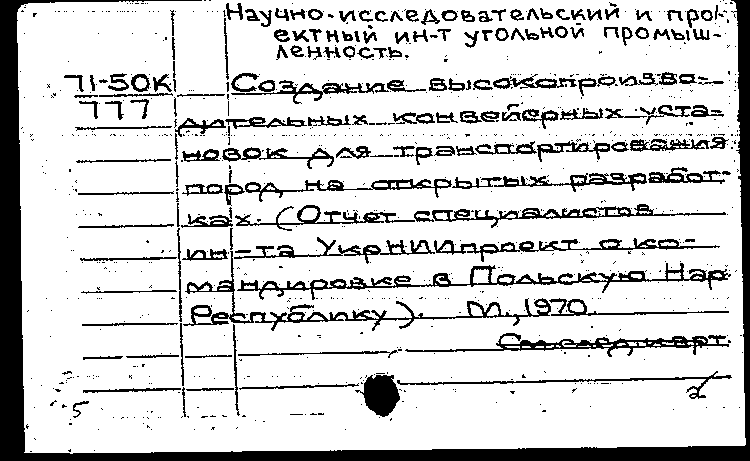 Научно-исследовательский и про-
ектный ин-т угольной промыш-
ленность.
71-50К Создание высокопроизво-
777
дительных конвейерных уста-
новок для транспортирования
пород на открытых разработ-
ках. (Отчет специалистов
ин-та УкрНИИпроект о ко-
мандировке в Польскую Нар
Республику). М., 1970.
См. след. карт.
5 2